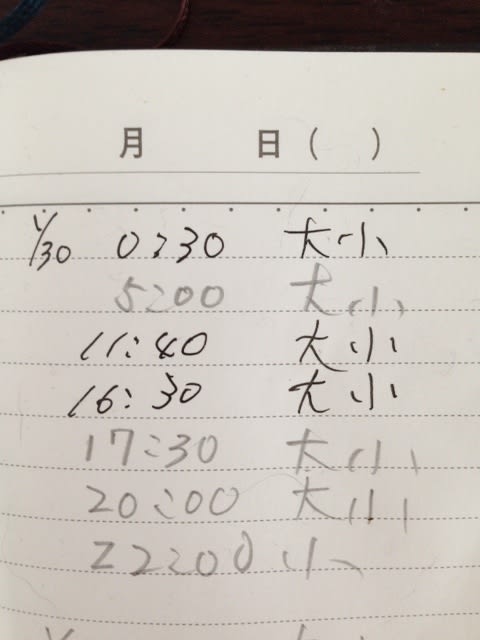 月 日( )
1/30 0:30 大小
5:00 大小
11:40 大小
16:30 大小
17:30 大小
20:00 大小
22:00 小